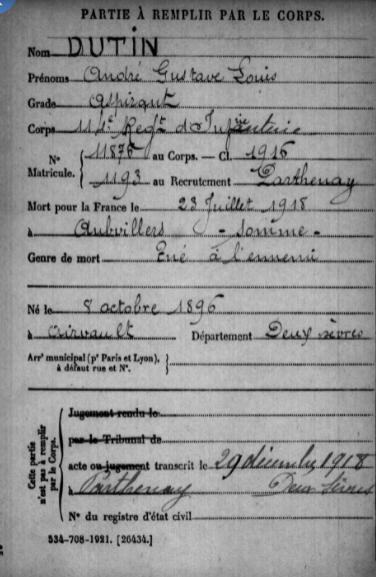 PARTIE À REMPLIR PAR LE CORPS.
Nom DUTIN
Prénoms André Gustave Louis
Grade Aspirant
Corps 114e Regt d'Infanterie
N° Matricule. { 11876 au Corps. — Cl. 1916
1193 au Recrutement Parthenay
Mort pour la France le 23 Juillet 1918
à Aubvillers - Somme -
Genre de mort Tué à l'ennemi
Né le 8 octobre 1896
à Airvault Département Deux Sèvres
Arrt municipal (pr Paris et Lyon), à défaut rue et N°. }
Cette partie n'est pas à remplir par le Corps. {
Jugement rendu le
par le Tribunal de
acte ou jugement transcrit le 29 décembre 1918
à Parthenay Deux Sèvres
N° du registre d'état civil
534-708-1921. [26434.]